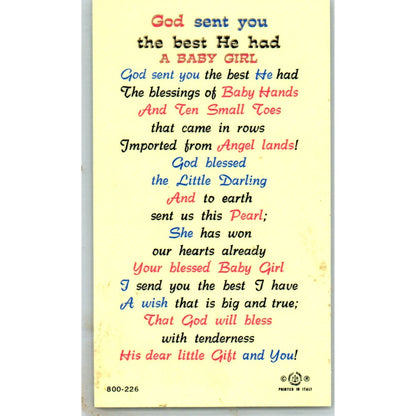 God sent you
the best He had
A BABY GIRL
God sent you the best He had
The blessings of Baby Hands
And Ten Small Toes
that came in rows
Imported from Angel lands!
God blessed
the Little Darling
And to earth
sent us this Pearl;
She has won
our hearts already
Your blessed Baby Girl
I send you the best I have
A wish that is big and true;
That God will bless
with tenderness
His dear little Gift and You!
800-226
© ®
PRINTED IN ITALY